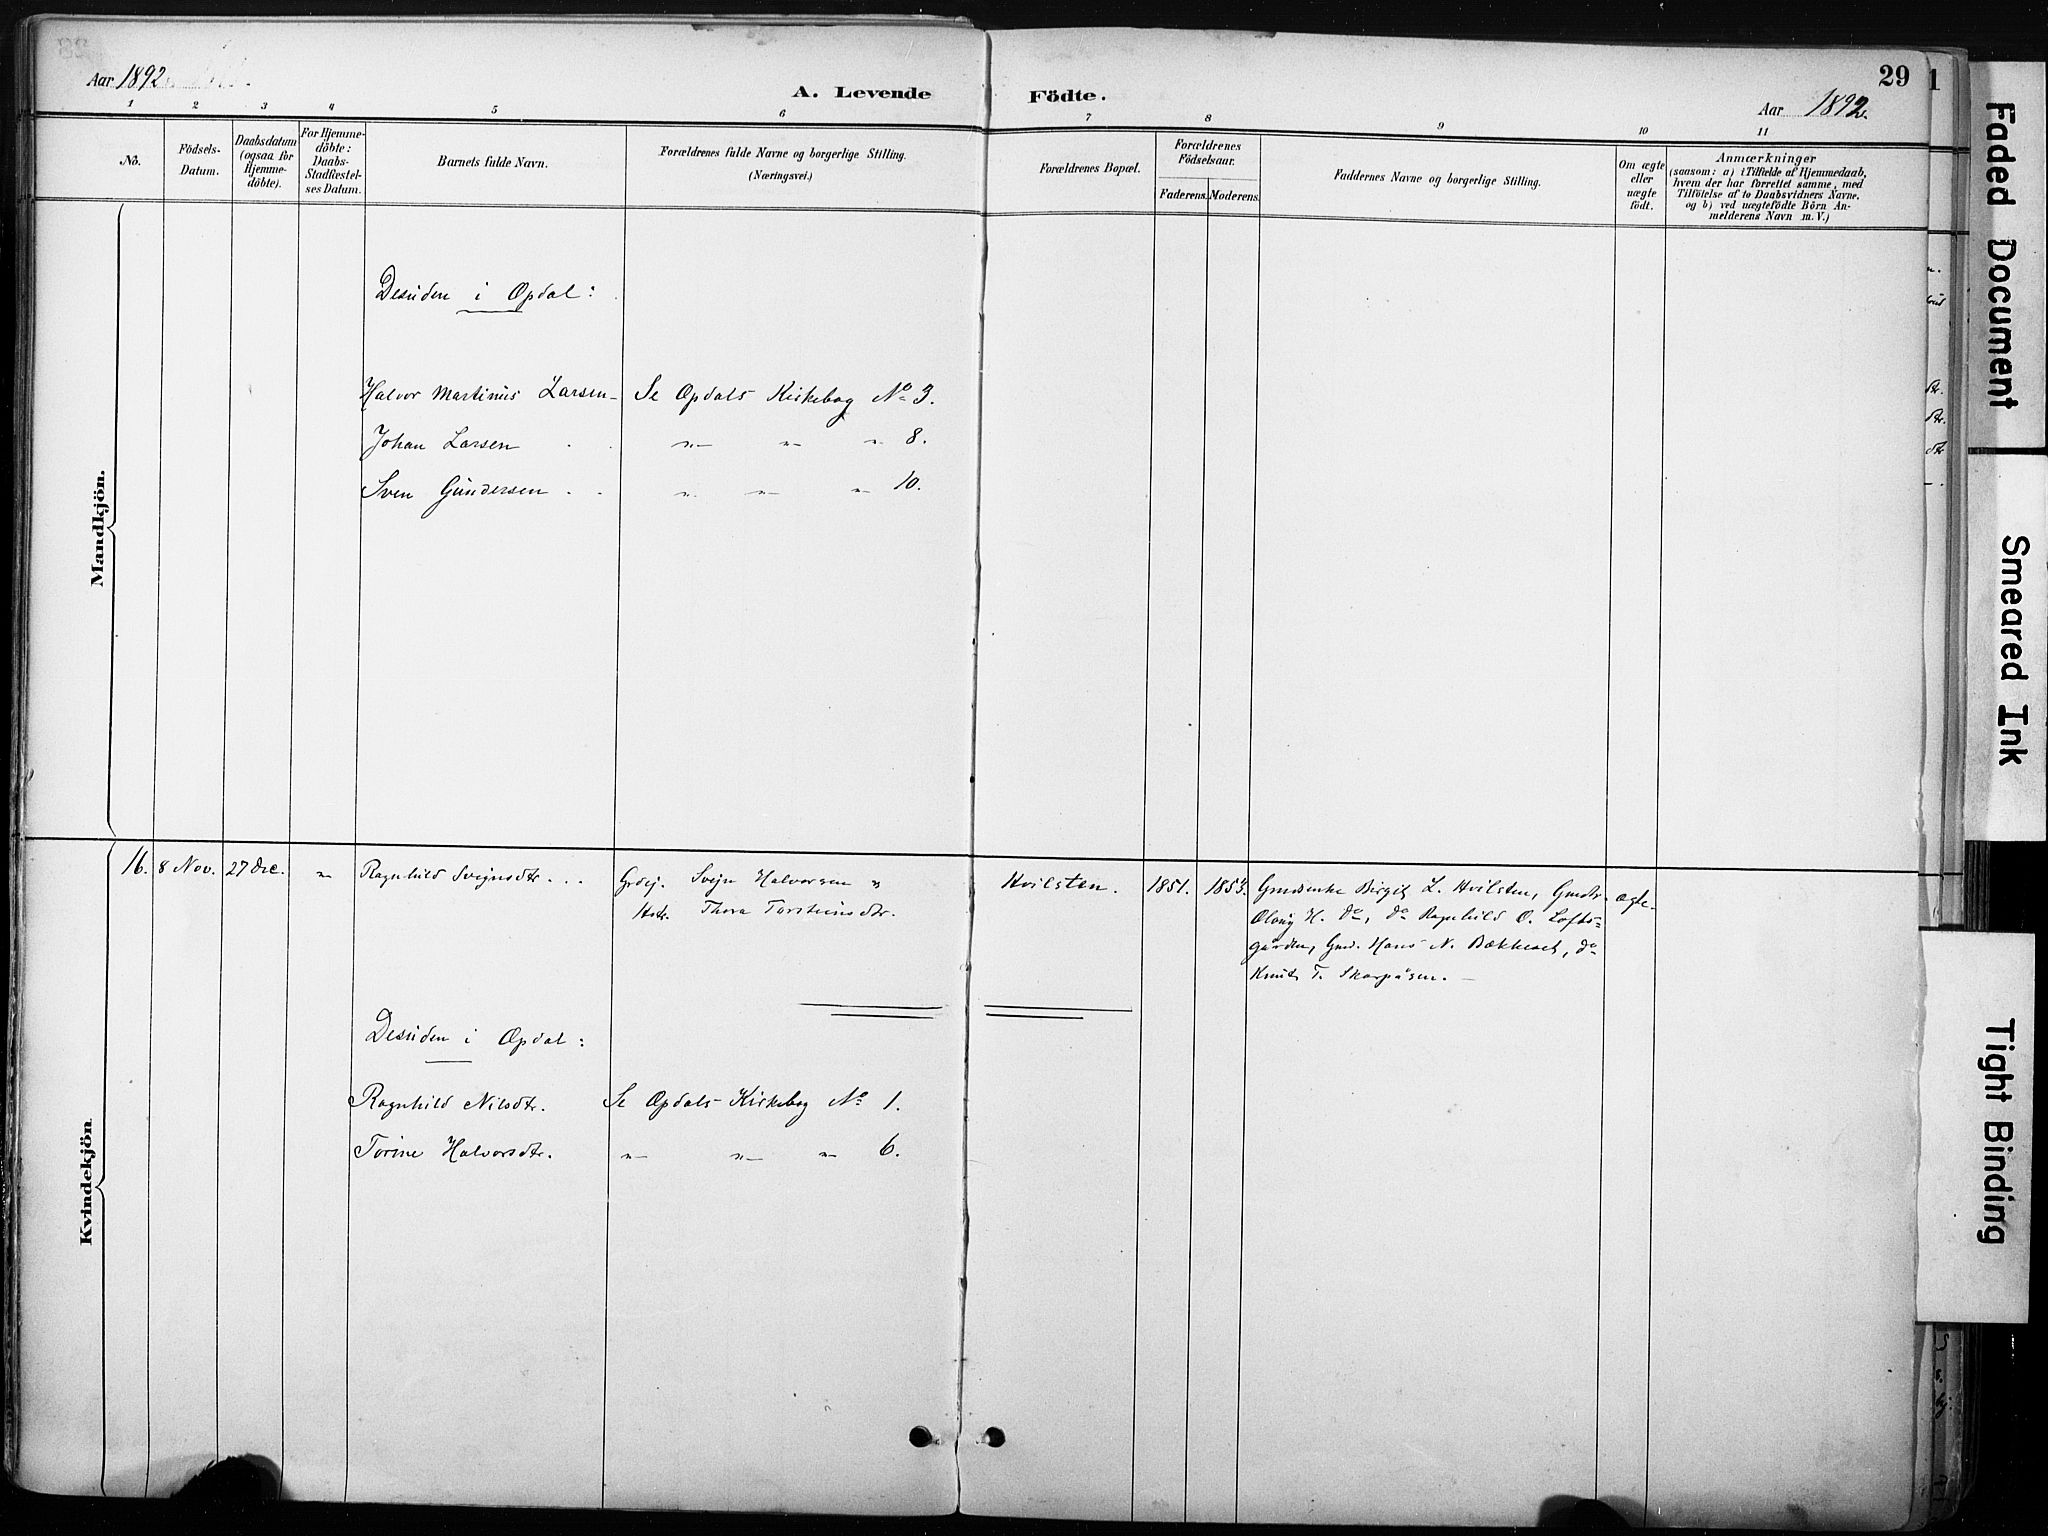 Aar 1892
A. Levende Födte.
29
Aar 1892.
1 2 3 4 5 6 7 8 9 10 11
No.
Födsels-Datum.
Daabsdatum (ogsaa for Hjemmedöbte).
For Hjemmedöbte: Daabs-Stadfæstelses Datum.
Barnets fulde Navn.
Forældrenes fulde Navne og borgerlige Stilling.
(Næringsvei.)
Forældrenes Bopæl.
Forældrenes Födselsaar.
Faderens. Moderens.
Faddernes Navne og borgerlige Stilling.
Om ægte eller uægte födt.
Anmærkninger
(saasom: a) i Tilfælde af Hjemmedaab,
hvem der har forrettet samme, med
Tilföielse af to Daabsvidners Navne.
og b) ved uægtefödte Börn An-
melderens Navn m. V.)
Mandkjön.
Desuden i Opdal:
Halvor Martinus Larsen - Se Opdals Kirkebog No 3.
Johan Larsen . . " " " 8.
Sven Gundersen . . " " " 10.
Kvindekjön.
16. 8 Nov. 27 Dec. " Ragnhild Svejnsdtr. . . Grdej. Svejn Halvorsen " Hvilsten. 1851. 1853. Gmdsenke Birgit L. Hvilsten, Gmdtr. ægte
Hstr. Thora Torsteinsdtr. Olaug H. do, do Ragnhild O. Lofts=
gården, Gmd. Hans N. Bækkeset, do
Knut T. Skarpåsen. -
Desuden i Opdal:
Ragnhild Nilsdtr. Se Opdals Kirkebog No 1.
Torine Halvorsdtr. " " " 6.
Faded Document
Smeared Ink
Tight Binding